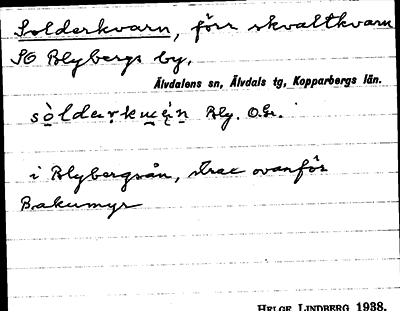 Solderkvarn, förr skvaltkvarn
SO Blybergs by.
Älvdalens sn, Älvdals tg, Kopparbergs län.
Bly. O.Gr.
i Blybergsån, strac ovanför
Bakumyr
HELGE LINDBERG 1938.